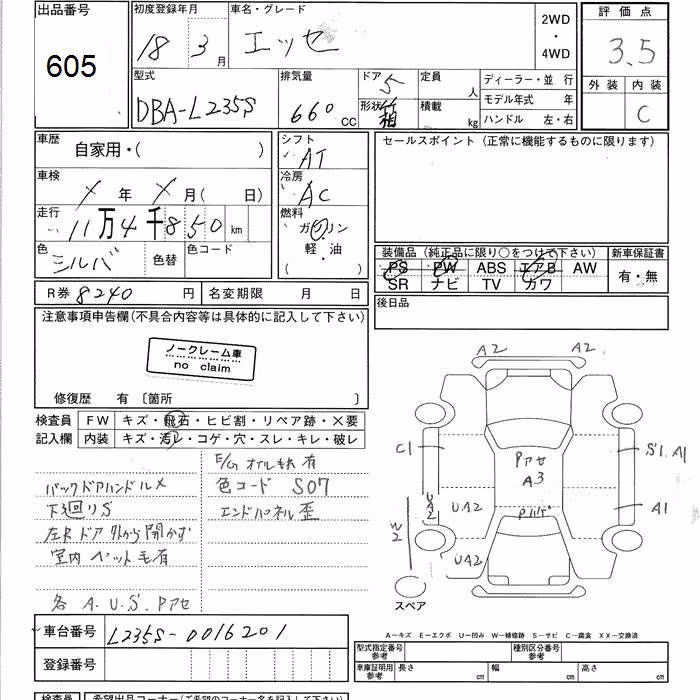 出品番号
605
初度登録年月
18 3月
車名・グレード
エッセ
2WD
・
4WD
評価点
3.5
外装 内装
C
型式
DBA-L235S
排気量
660 cc
ドア 5
形状 箱
定員 人
積載 kg
ディーラー・並行
モデル年式 年
ハンドル 左・右
車歴
自家用・( )
シフト
AT
セールスポイント (正常に機能するものに限ります)
車検
X年 X月( 日)
冷房
AC
走行
11万4千850 km
燃料
ガソリン
軽・油
( )
色
シルバ
色替
色コード
装備品 (純正品に限り○をつけて下さい)
PS PW ABS エアB AW
SR ナビ TV カワ
新車保証書
有・無
R券 8240 円
名変期限 月 日
後日品
注意事項申告欄(不具合内容等は具体的に記入して下さい)
ノークレーム車
no claim
修復歴 有 〔箇所 〕
検査員
記入欄
FW キズ・飛石・ヒビ割・リペア跡・×要
内装 キズ・汚レ・コゲ・穴・スレ・キレ・破レ
バックドアハンドルメ
下廻りS
左R ドア 外から開かず
室内 ペット毛有
各 A.U.S.Pアセ
E/G オイルもれ有
色コード S07
エンドパネル歪
A2 A2
C1
S1.A1
Pアセ
A3
UA2
UA2
W2
UA2
A1
スペア
A－キズ E－エクボ U－凹み W－補修跡 S－サビ C－腐食 XX－交換済
車台番号
L235S-0016201
登録番号
型式指定番号
参考
種別区分番号
参考
車庫証明用
参考
長さ cm 幅 cm 高さ cm
検査員
希望出品コーナー(ご希望のコーナー名をご記入下さい)